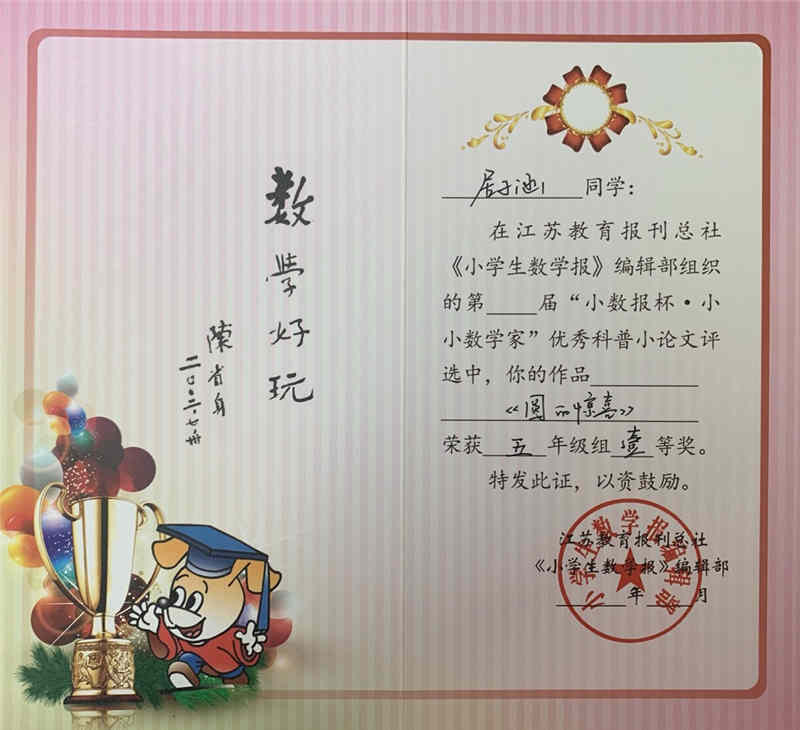 数学好玩
陳省身
居子涵同学：
在江苏教育报刊总社
《小学生数学报》编辑部组织
的第____届“小数报杯·小
小数学家”优秀科普小论文评
选中，你的作品
《圆的惊喜》
荣获五年级组壹等奖。
特发此证，以资鼓励。
江苏教育报刊总社
《小学生数学报》编辑部
____年____月
小学生数学报编辑部